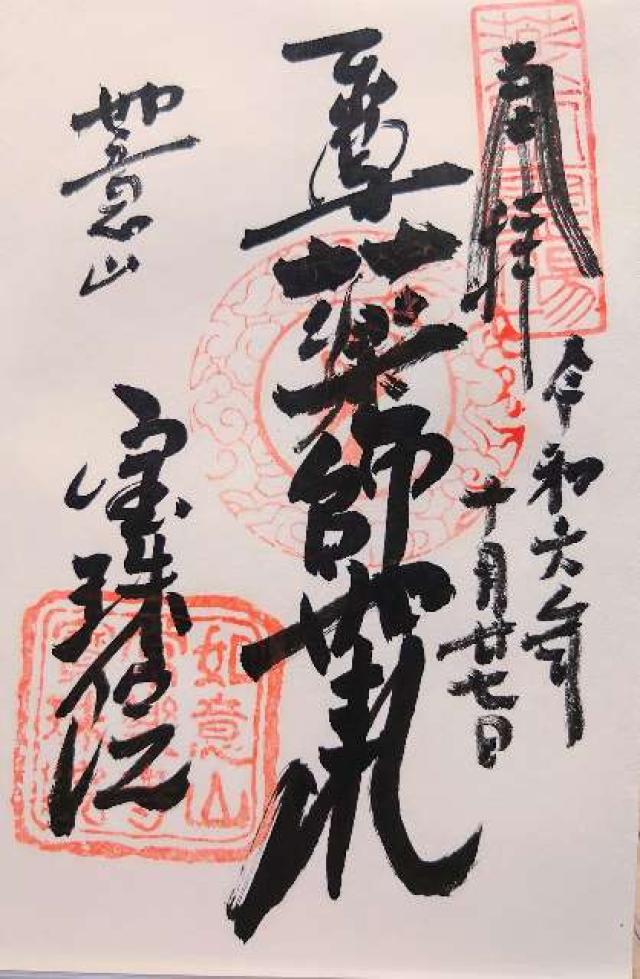 奉拝
令和六年
十月廿七日
尊薬師如来
如意山
宝珠院
如意山